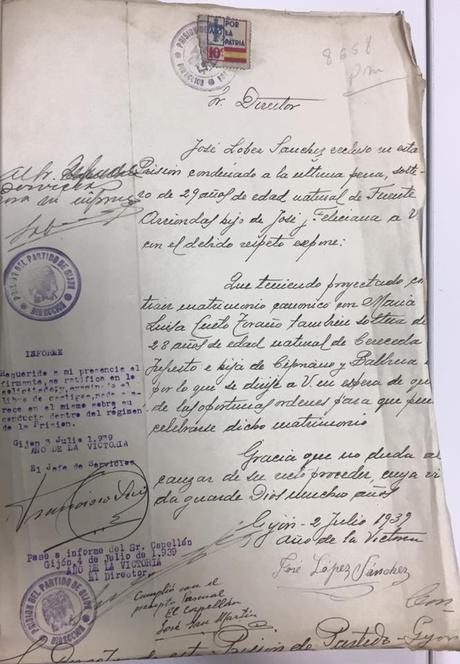 PRISION DEL PARTIDO
DIRECCION
POR
LA
PATRIA
10c
8658
Sr. Director
José López Sanchez recluso en esta
Prisión condenado a la última pena, solte-
ro de 29 años de edad natural de Fuente
Arriondas hijo de José y Feliciana a V.
con el debido respeto expone:
Que teniendo proyectado con-
traer matrimonio canonico con Maria
Luisa Cueto Toraño tambien soltera de
28 años de edad natural de Cereceda
Infiesto e hija de Cipriano y Balbina
por lo que se dirije a V. en espera de que
de las oportunas ordenes para que pueda
celebrarse dicho matrimonio
Gracia que no duda al-
canzar de su recto proceder, cuya vi-
da guarde Dios mucho años
Gijón - 2 Julio 1939
Año de la Victoria
José López Sánchez
Servicios
para su informe
PRISION DEL PARTIDO DE GIJON
DIRECCION
INFORME
Requerido a mi presencia el
firmante, se ratifica en lo
solicitado
libro de castigos, nada a-
rece en el mismo sobre su
conducta dentro del régimen
de la Prision.
Gijon 3 Julio 1.939
AÑO DE LA VICTORIA
El Jefe de Servicios
Francisco
Pase a informe del Sr. Capellón
Gijón, 4 de Julio de 1.939
AÑO DE LA VICTORIA
El Director,
Cumplió con el
precepto Pascual
El Capellán
José San Martin
PRISION DEL PARTIDO DE GIJON
DIRECCION
Prisión de Partido - Gijon